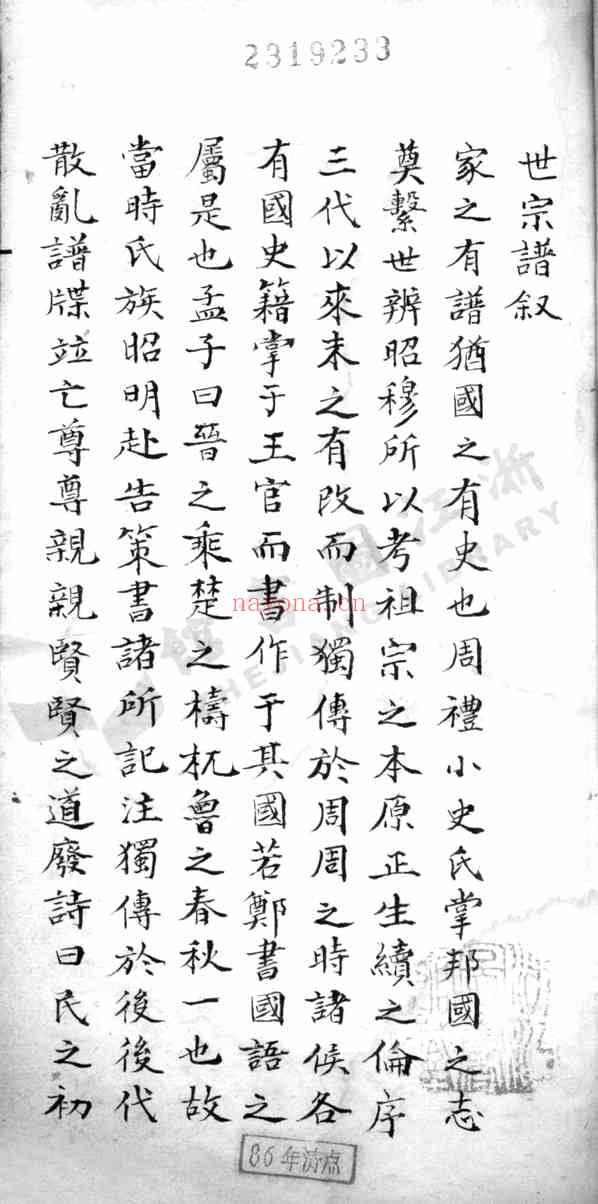 2319233
世宗譜叙
家之有譜猶國之有史也周禮小史氏掌邦國之志
奠繫世辨昭穆所以考祖宗之本原正生續之倫序
三代以來未之有改而制獨傳於周周之時諸候各
有國史籍掌于王官而書作于其國若鄭書國語之
屬是也孟子曰晉之乘楚之檮杌魯之春秋一也故
當時氏族昭明赴告策書諸所記注獨傳於後後代
散亂譜牒竝亡尊尊親親賢賢之道廢詩曰民之初
浙江圖書館
ZHEJIANG LIBRARY
nayona.cn
86年清点